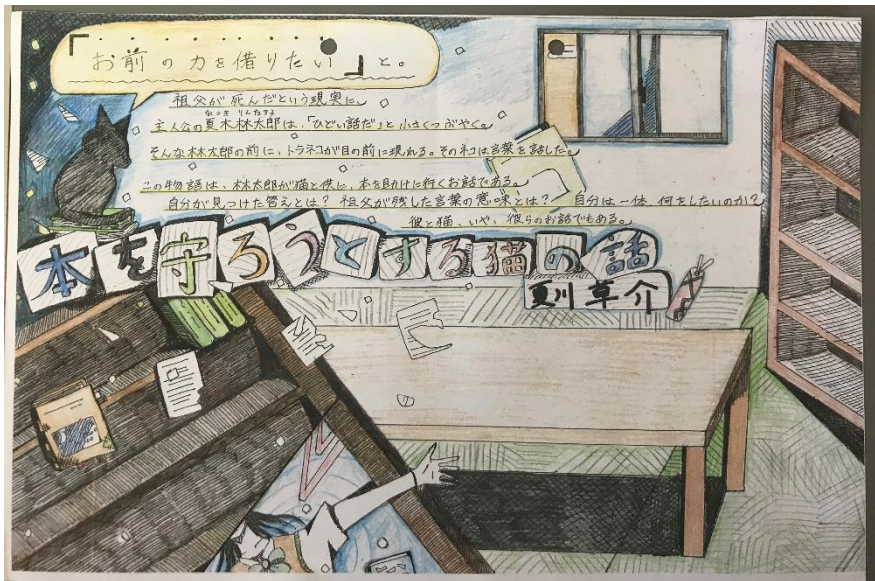 「お前の力を借りたい」と。
祖父が死んだという現実に、
なつき りんたろう
主人公の夏木林太郎は、「ひどい話だ」と小さくつぶやく。
そんな林太郎の前に、トラネコが目の前に現れる。そのネコは言葉を話した。
この物語は、林太郎が猫と供に、本を助けに行くお話である。
自分が見つけた答えとは? 祖父が残した言葉の意味とは? 自分は一体、何をしたいのか?
彼と猫、いや、彼らのお話でもある。
本を守ろうとする猫の話
夏川草介